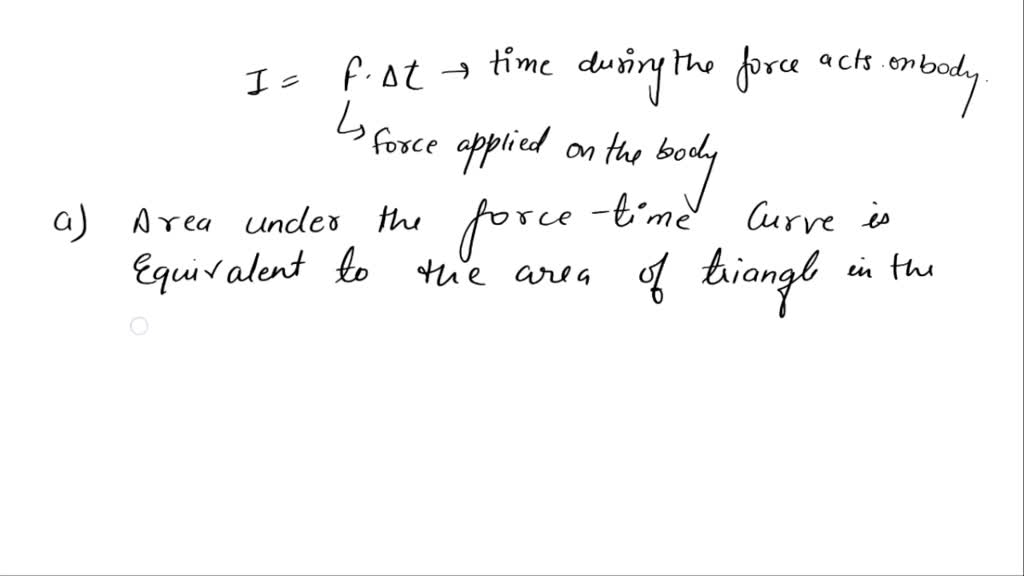 I = f. Δt → time during the force acts. on body.
↳ force applied on the body
a) Area under the force - time curve is
Equivalent to the area of triangl in the